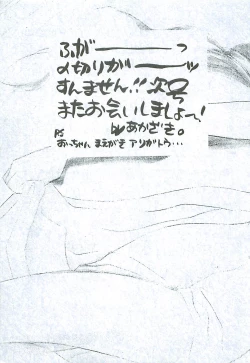 ふがーーーっ
〆切りがーーーッ
すんません!!次号
またお会いしましょ〜!
by あかざき。
PS
おっちゃん、まえがき アリガトウ…